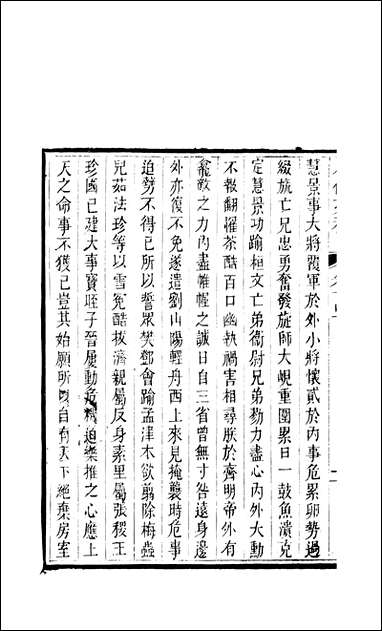 慧景事大將覆軍於外小將懷貳於內事危累卵勢過
綴旒亡兄忠勇奮發旋師大峴重圍累日一鼓魚潰克
定慧景功踰桓文亡弟衛尉兄弟勠力盡心內外大勳
不報翻擢荼酷百口幽執禍害相尋朕於齊明帝外有
龕敵之力內盡帷幄之誠日自三省曾無寸咎遠身邊
外亦復不免遂遣劉山陽輕舟西上來見掩襲時危事
迫勢不得已所以誓眾樊鄧會踰孟津本欲翦除梅蟲
兒茹法珍等以雪冤酷拔濟親屬反身素里屬張稷王
珍國已建大事寶晊子晉屢動危機迫樂推之心應上
天之命事不獲已豈其始願所以自有天下絕棄房室